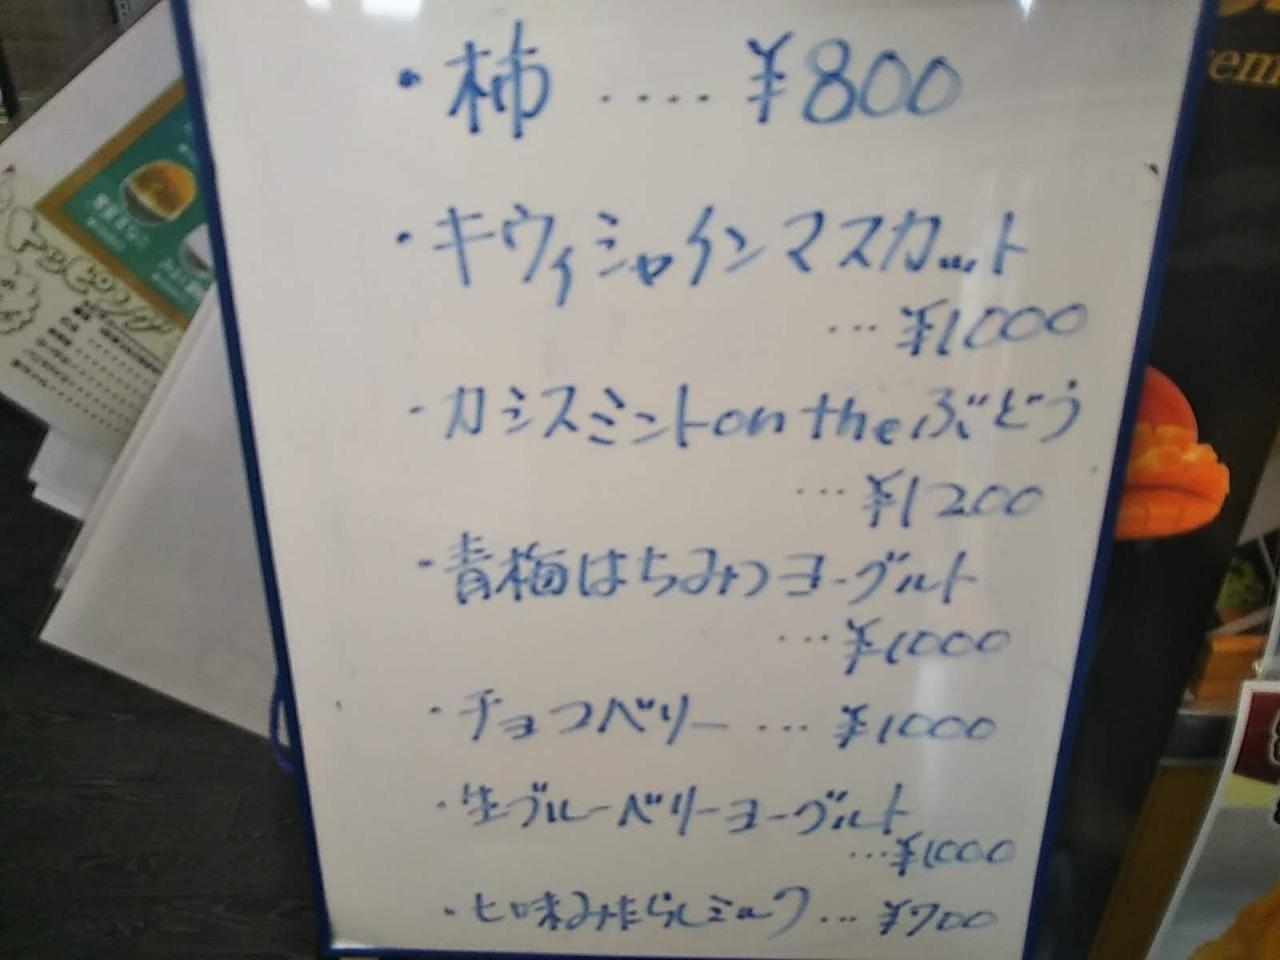 ・柿 .... ¥800
・キウィシャインマスカット
... ¥1000
・カシスミントon theぶどう
... ¥1200
・青梅はちみつヨーグルト
... ¥1000
・チョコベリー ... ¥1000
・生ブルーベリーヨーグルト
... ¥1000
・七味みたらしミルク ... ¥700
トッピング